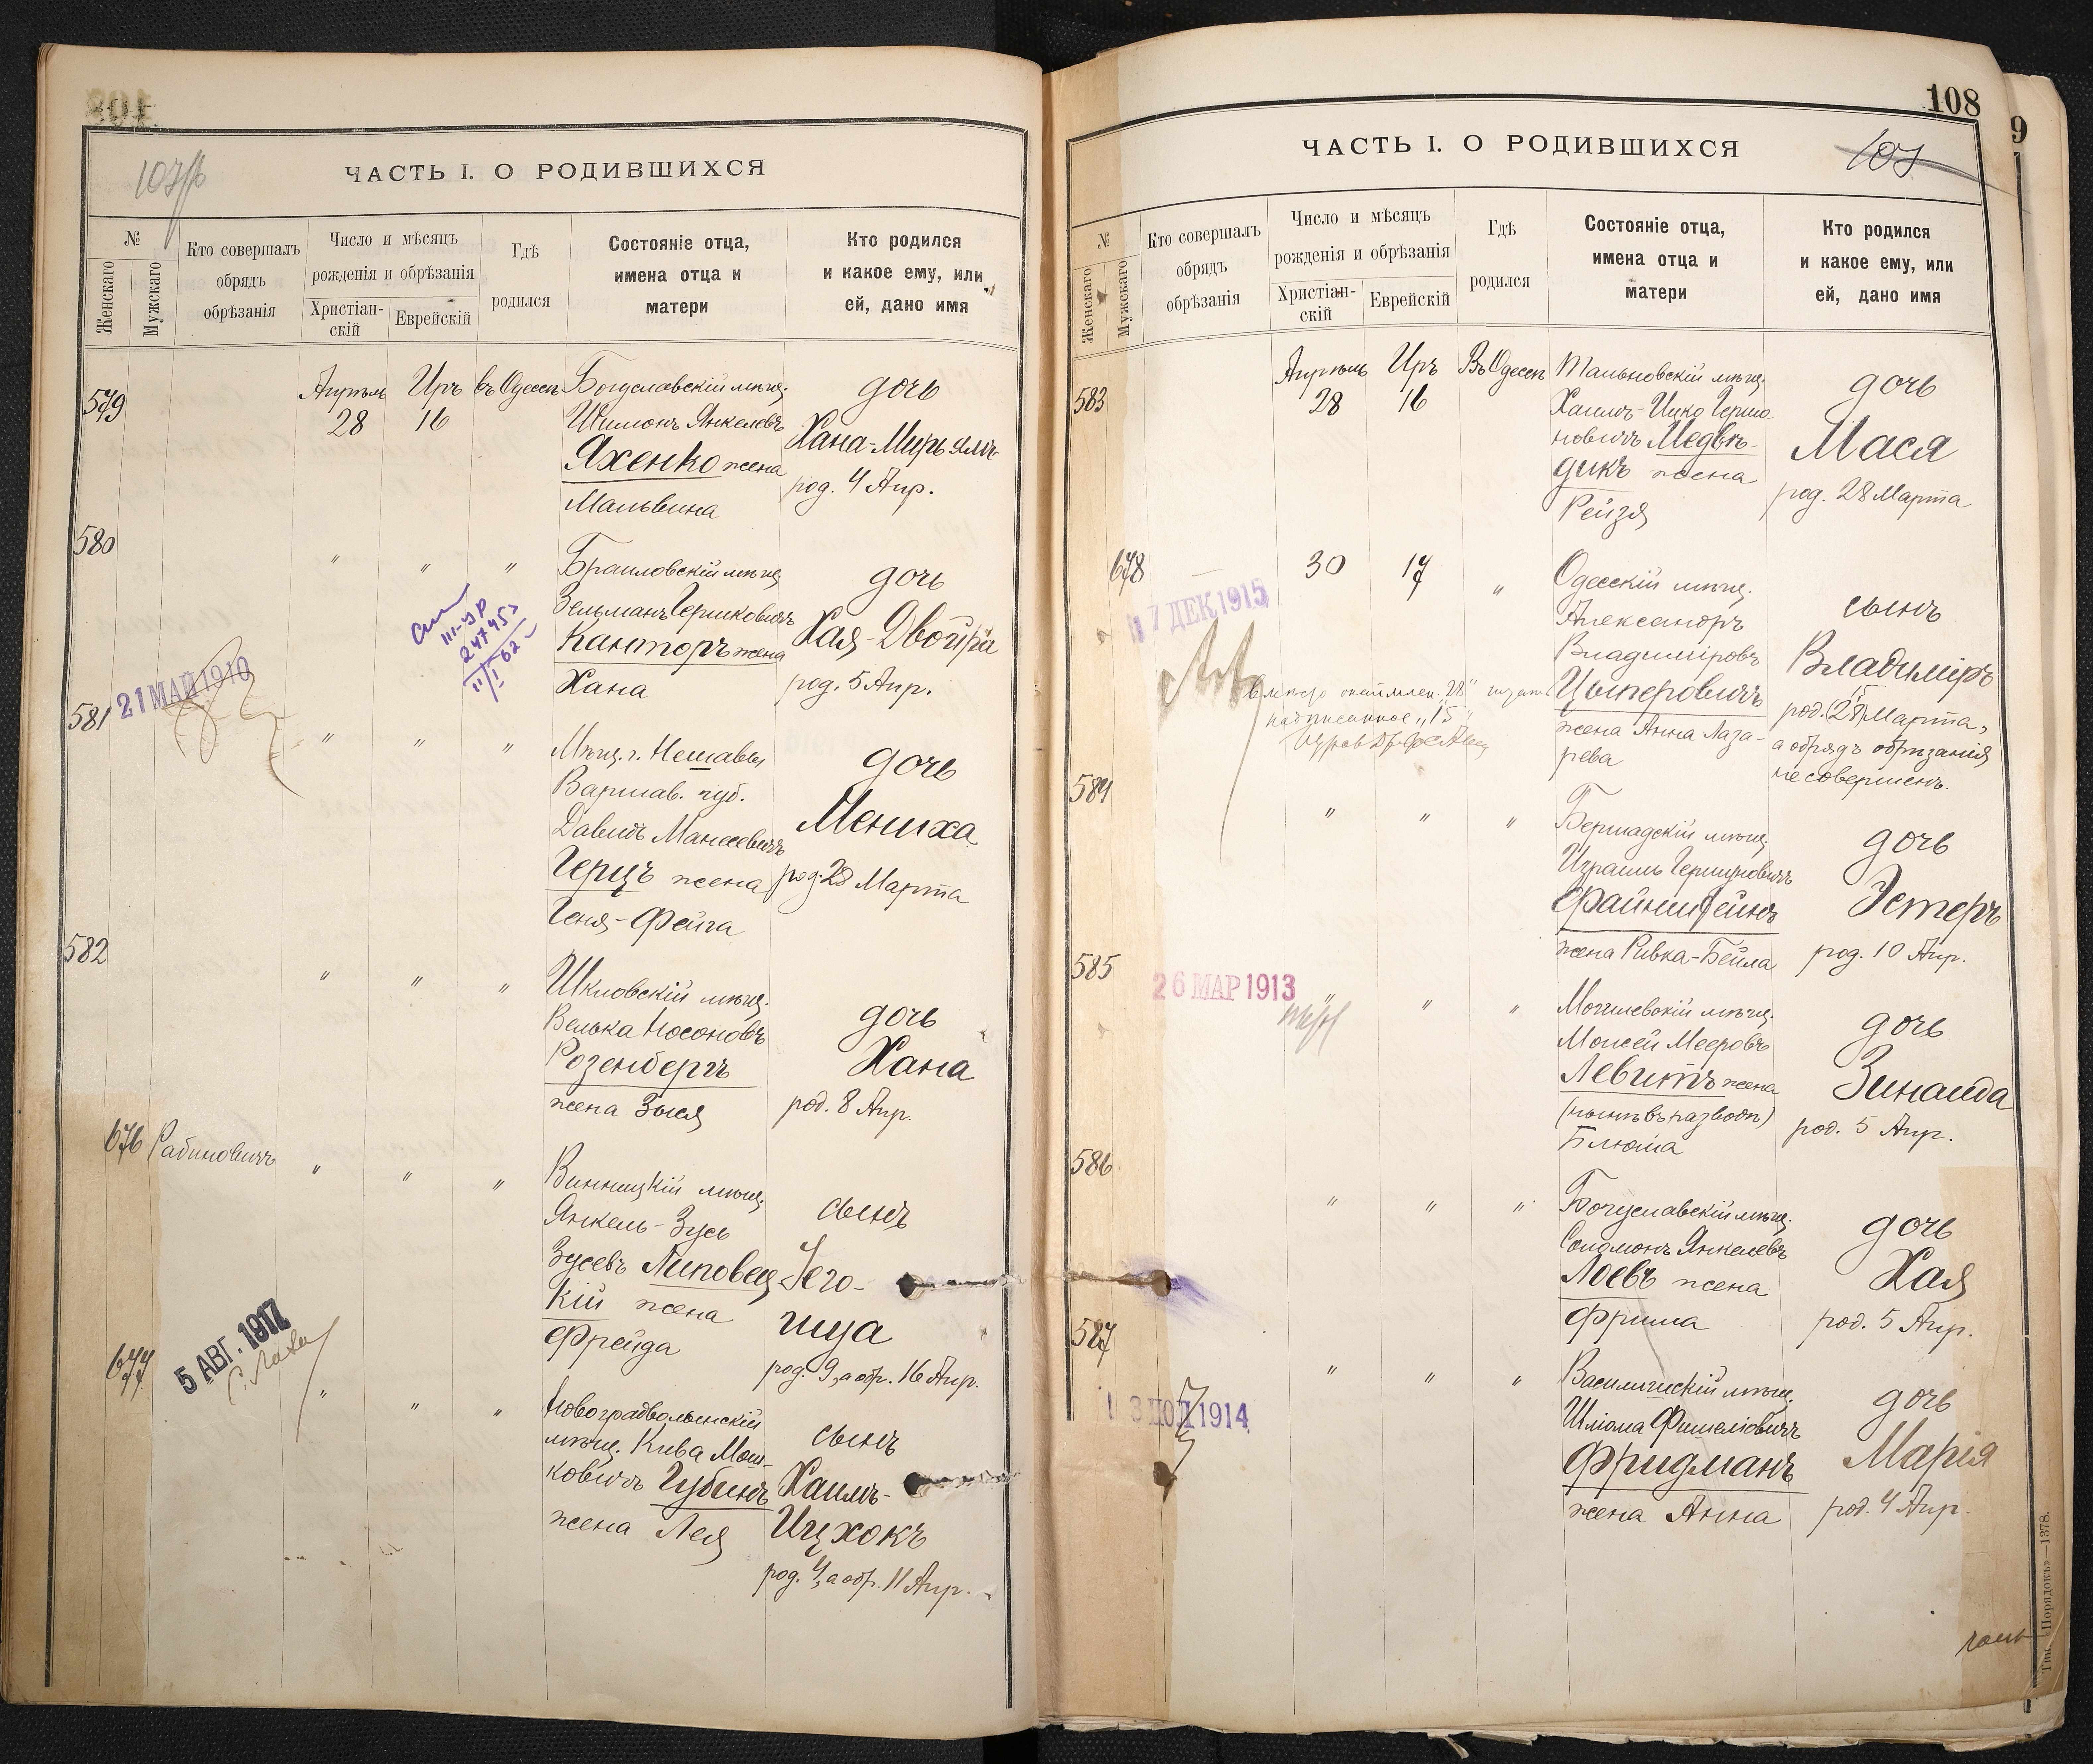 107об
ЧАСТЬ I. О РОДИВШИХСЯ
№
Женскаго
Мужскаго
Кто совершалъ
обрядъ
обрѣзанія
Число и мѣсяцъ
рожденія и обрѣзанія
Христіан-
скій
Еврейскій
Гдѣ
родился
Состояніе отца,
имена отца и
матери
Кто родился
и какое ему, или
ей, дано имя
579
Апрѣль
28
Иръ
16
въ Одессѣ
Богуславскій мѣщ.
Шимонъ Янкелевъ
Яхенко жена
Мальвина
дочь
Хана-Мирьямъ
род. 4 Апр.
580
" " "
Браиловскій мѣщ.
Зельманъ Гершковичъ
Канторъ жена
Хана
дочь
Хая-Двойра
род. 5 Апр.
III-УР
247453
11/I 62
21 МАЙ 1910
581
" " "
Мѣщ. г. Нешавы
Варшав. губ.
Давидъ Манесевичъ
Герцъ жена
Геня-Фейга
дочь
Мениха
род. 28 Марта
582
" " "
Шкловскій мѣщ.
Велька Носоновъ
Розенбергъ
жена Зыся
дочь
Хана
род. 8 Апр.
676
Рабиновичъ
" " "
Винницкій мѣщ.
Янкель-Зусь
Зусевъ Липовец-
кій жена
Фрейда
сынъ
Іего-
шуа
род. 9, а обр. 16 Апр.
677
5 АВГ. 1917
" " "
Новоградволынскій
мѣщ. Кива Мош-
ковичъ Губинъ
жена Лея
сынъ
Хаимъ-
Ицхокъ
род. 4, а обр. 11 Апр.
108
9
ЧАСТЬ I. О РОДИВШИХСЯ
107
№
Женскаго
Мужскаго
Кто совершалъ
обрядъ
обрѣзанія
Число и мѣсяцъ
рожденія и обрѣзанія
Христіан-
скій
Еврейскій
Гдѣ
родился
Состояніе отца,
имена отца и
матери
Кто родился
и какое ему, или
ей, дано имя
583
Апрѣль
28
Иръ
16
Въ Одессѣ
Тальновскій мѣщ.
Хаимъ-Ицко Гершо
новичъ Медвѣ-
дикъ жена
Рейзя
дочь
Мася
род. 28 Марта
678
—
30
17
"
17 ДЕК 1915
Одесскій мѣщ.
Александръ
Владиміровъ
Цыперовичъ
жена Анна Лаза-
рева
сынъ
Владиміръ
15
род. (28) Марта,
а обрядъ обрѣзанія
не совершенъ.
вмѣсто "28" читать
надписанное "15"
584
" " "
Бершадскій мѣщ.
Израиль Гершуновичъ
Файнштейнъ
жена Ривка-Бейла
дочь
Эстеръ
род. 10 Апр.
585
26 МАР 1913
" " "
Могилевскій мѣщ.
Моисей Мееровъ
Левитъ жена
(нынѣ въ разводѣ)
Блюма
дочь
Зинаида
род. 5 Апр.
586
" " "
Богуславскій мѣщ.
Соломонъ Янкелевъ
Лоевъ жена
Фрима
дочь
Хая
род. 5 Апр.
587
13 ІЮЛ 1914
" " "
Василишскій мѣщ.
Шліома Фишеліовичъ
Фридманъ
жена Анна
дочь
Марія
род. 4 Апр.
Тип. „Порядокъ"—1378.